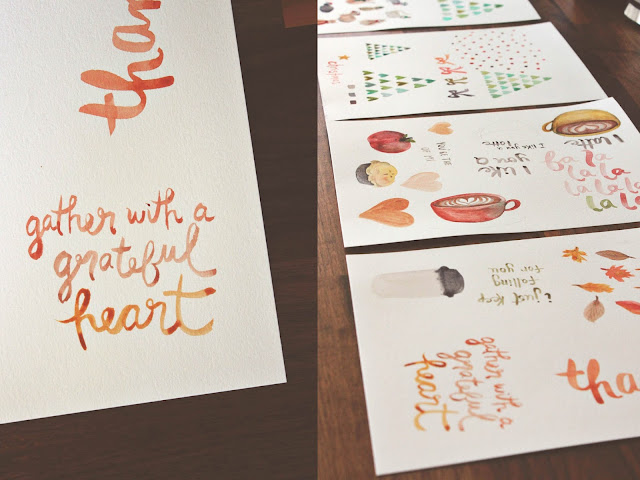 than
gather with a
grateful
heart
I latte
I like you a latte
I like
you a
la la
la la
la la la
la la
i just keep
falling
for you
gather with a
grateful
heart
tha